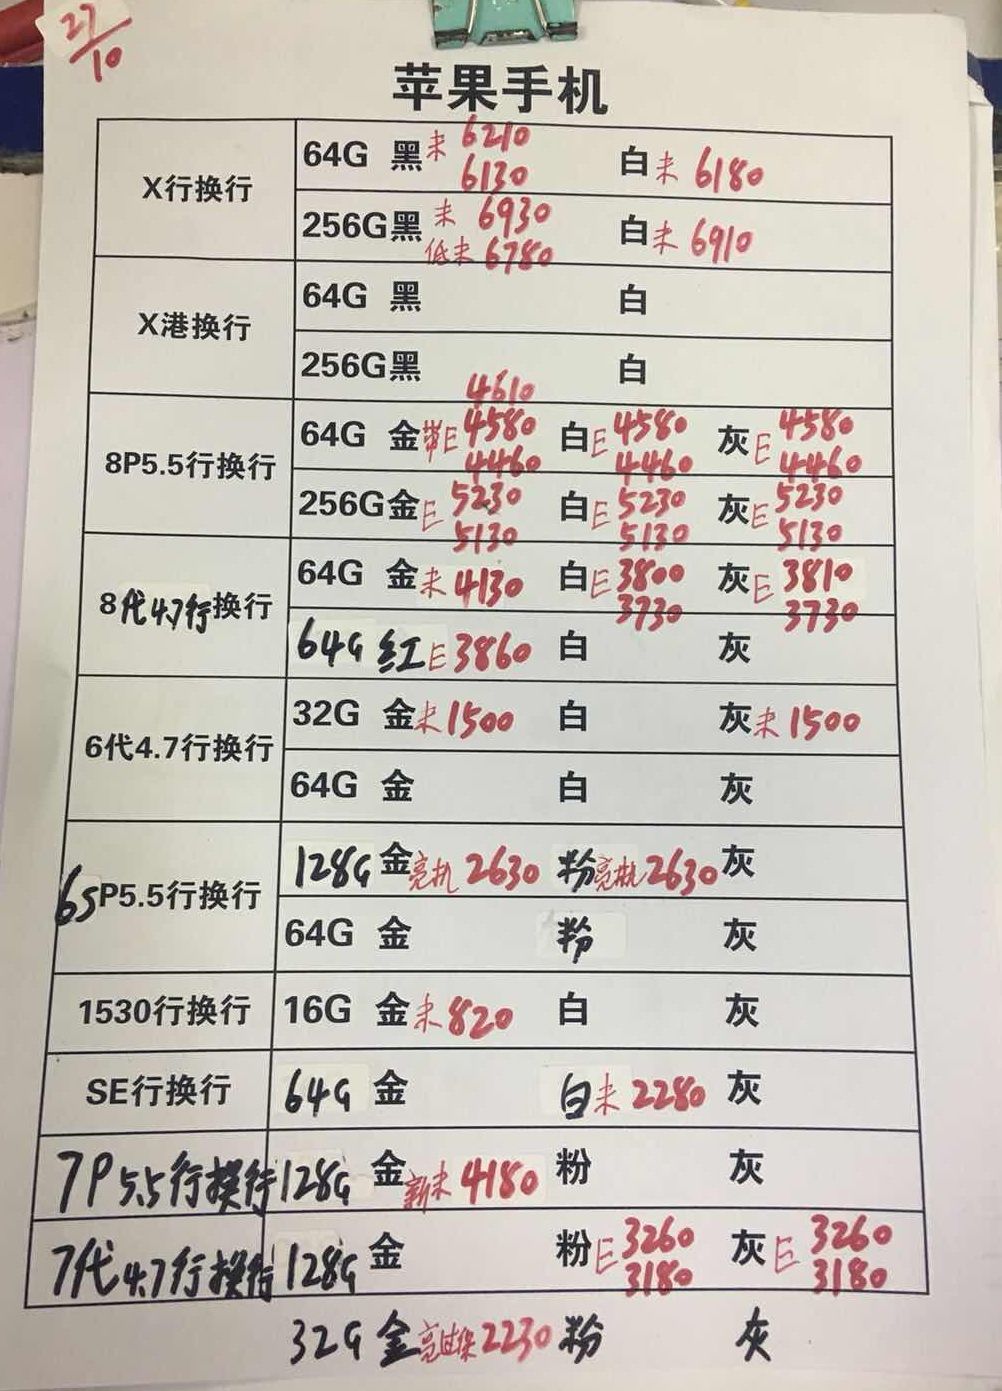 27/10
苹果手机
X行换行
64G 黑 未 6210 6130 白 未 6180
256G 黑 未 6930 低未 6780 白 未 6910
X港换行
64G 黑 白
256G 黑 白
8P5.5行换行
64G 金 带E 4610 4580 4460 白 E 4580 4460 灰 E 4580 4460
256G 金 E 5230 5130 白 E 5230 5130 灰 E 5230 5130
8代4.7行换行
64G 金 未 4130 白 E 3800 3730 灰 E 3810 3730
64G 红 E 3860 白 灰
6代4.7行换行
32G 金 未 1500 白 灰 未 1500
64G 金 白 灰
6SP5.5行换行
128G 金 亮机 2630 粉 亮机 2630 灰
64G 金 粉 灰
1530行换行 16G 金 未 820 白 灰
SE行换行 64G 金 白 未 2280 灰
7P5.5行换行 128G 金 新未 4180 粉 灰
7代4.7行换行 128G 金 粉 E 3260 3180 灰 E 3260 3180
32G 金 亮过保 2230 粉 灰